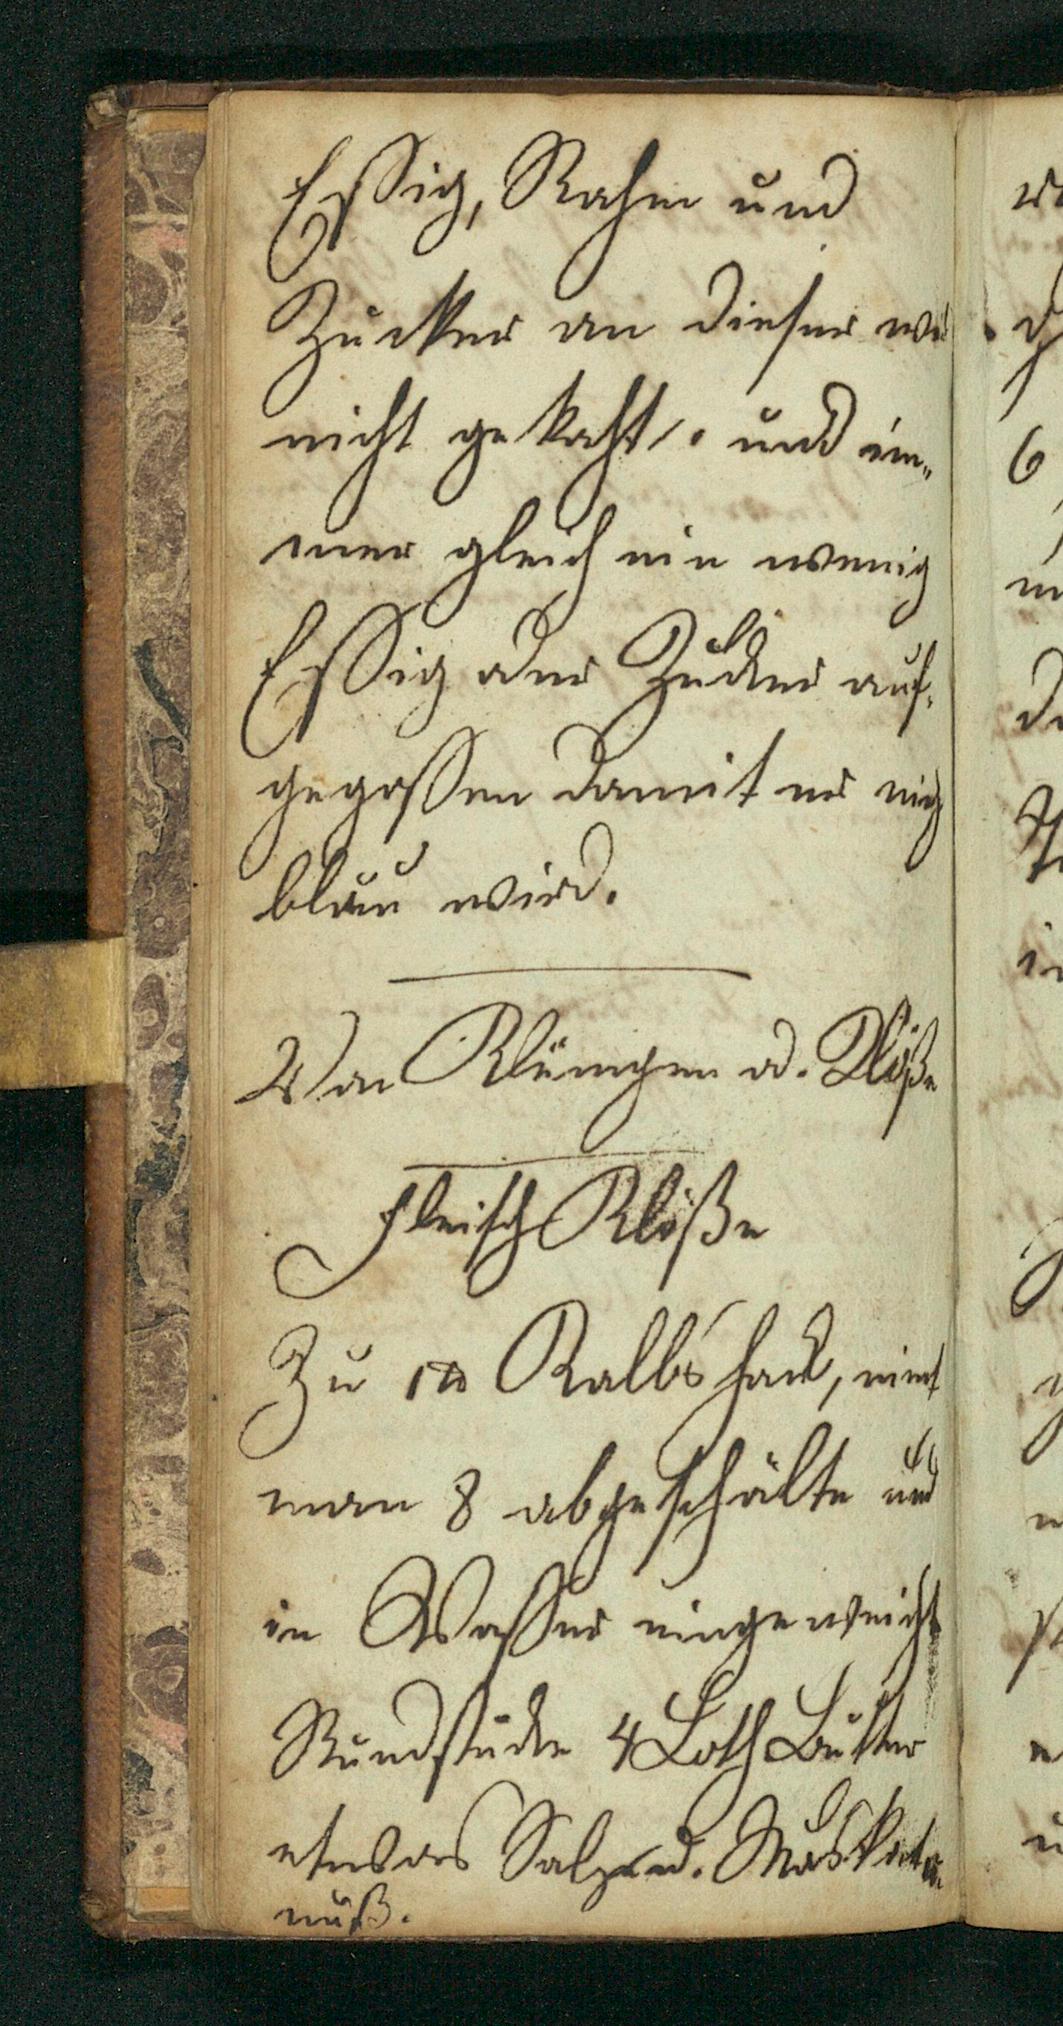 Essig, Rahm und
Zucker an dieser wi
nicht gekocht, und im„
mer gleich ein wenig
Essig oder Zucker auf„
gegossen damit er nich
blau wird.
Von Klümpgen od. Klöße
Fleisch Klöße
Zu 1 ℔ Kalbshack, nimt
man 8 abgeschälte und
in Wasser eingeweicht
Rundstücke 4 Loth Butter
etwas Salz u. Muskate„
nuß.